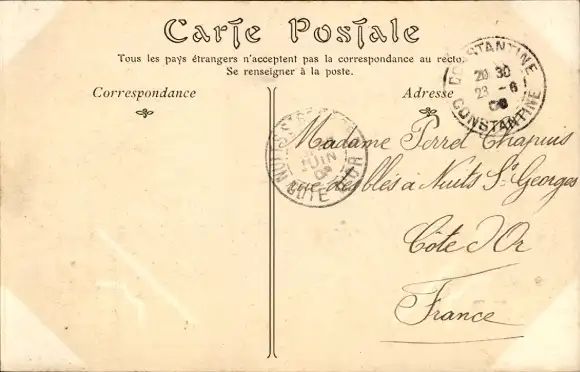 Carte Postale
Tous les pays étrangers n'acceptent pas la correspondance au recto.
Se renseigner à la poste.
Correspondance
Adresse
CONSTANTINE
20 30
23 - 6
CONSTANTINE
NUITS ST
JUIN
COTE D'OR
Madame Perret Chapuis
rue des blés à Nuits St Georges
Côte d'Or
France